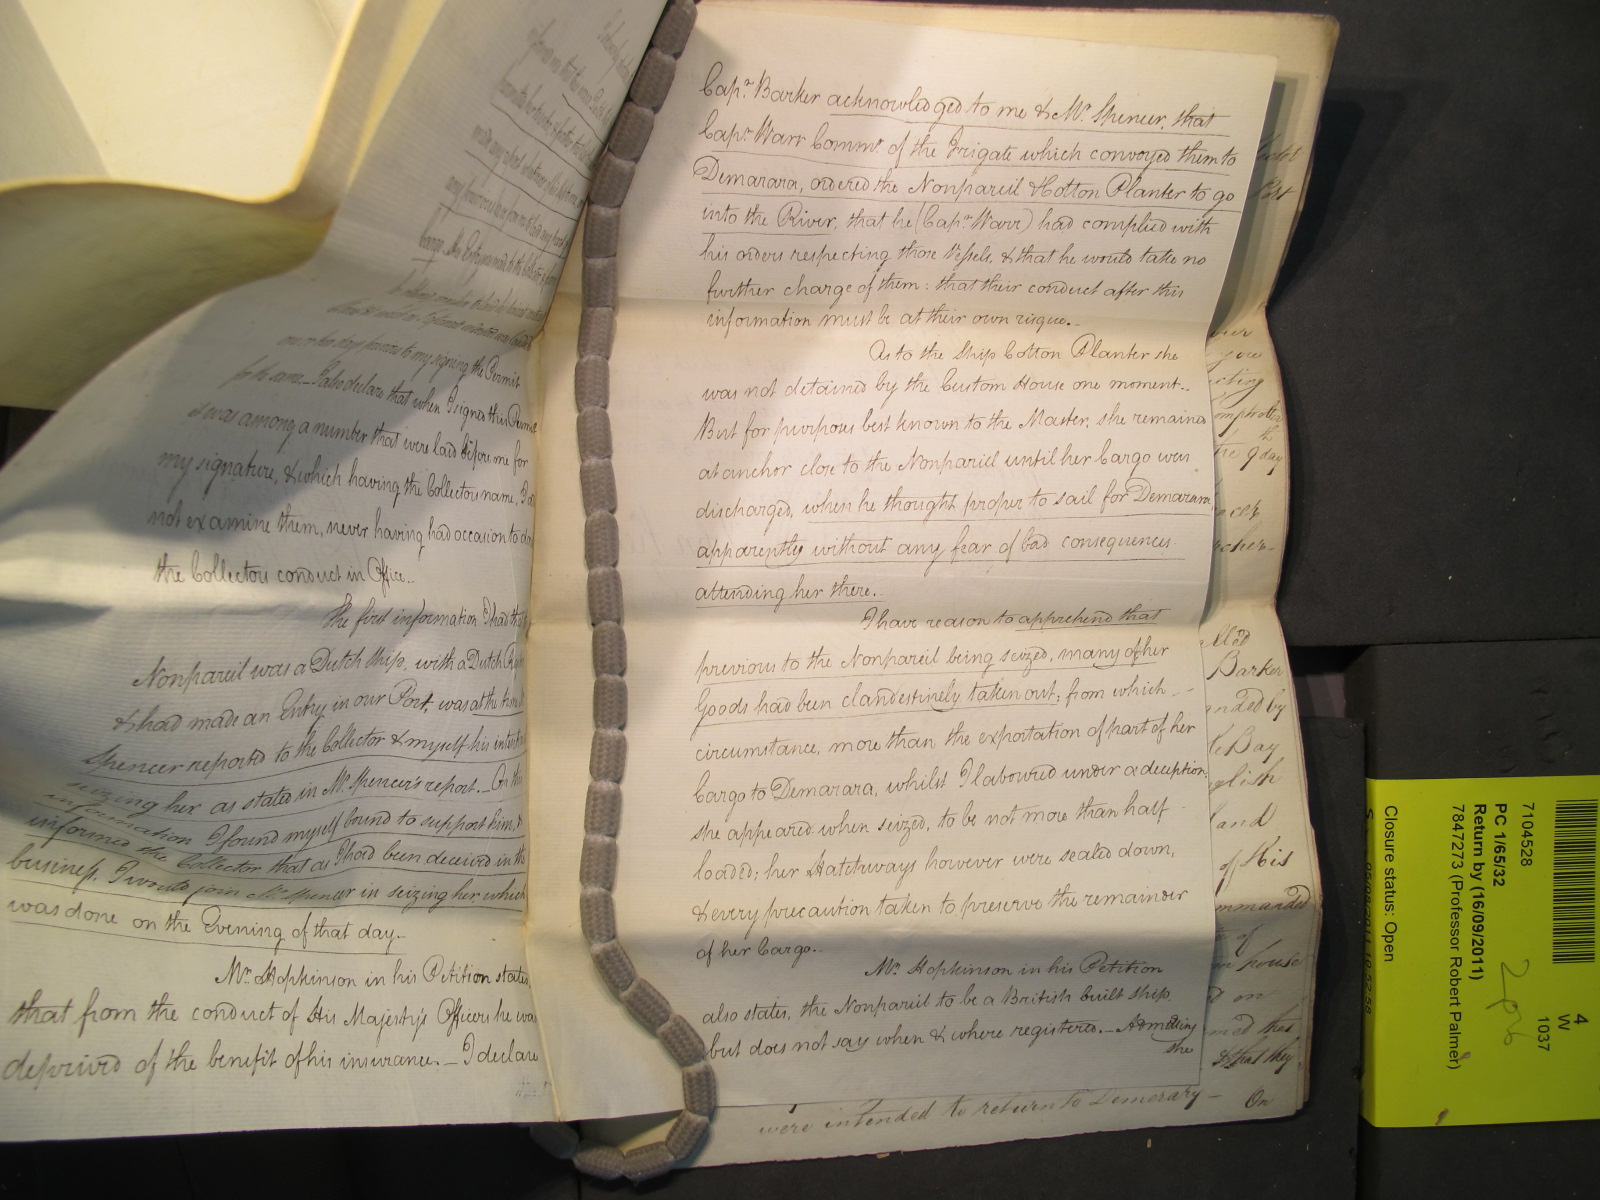 my signing the Permit
for the same. I also declare that when I signed this
it was among a number that were laid before me for
my signature, & which having the Collectors name, I
not examine them, never having had occasion to
the Collectors conduct in Office..
The first information I had
Nonpareil was a Dutch Ship, with a Dutch
& had made an Entry in our Port, was at the
Spencer reported to the Collector & myself his
seizing her as stated in Mr. Spencer's report. On
information I found myself bound to support him,
informed the Collector that as I had been deceived in the
business, I would join Mr. Spencer in seizing her, which
was done on the Evening of that day.
Mr. Hopkinson in his Petition states
that from the conduct of His Majesty's Officers he was
deprived of the benefit of his insurance. I declare
Capn. Barker acknowledged to me & Mr. Spencer, that
Capn. Warr Commr. of the Frigate which convoyed them to
Demarara, ordered the Nonpareil & Cotton Planter to go
into the River, that he (Capn. Warr) had complied with
his orders respecting those Vessels, & that he would take no
further charge of them: that their conduct after this
information must be at their own risque.
As to the Ship Cotton Planter she
was not detained by the Custom House one moment.
But for purposes best known to the Master, she remained
at anchor close to the Nonpareil until her Cargo was
discharged, when he thought proper to sail for Demarara,
apparently without any fear of bad consequences
attending her there.
I have reason to apprehend that
previous to the Nonpareil being seized, many of her
Goods had been clandestinely taken out; from which
circumstance, more than the exportation of part of her
Cargo to Demarara, whilst I laboured under a deception;
she appeared when seized, to be not more than half
loaded; her Hatchways however were sealed down,
& every precaution taken to preserve the remainder
of her Cargo.
Mr. Hopkinson in his Petition
also states, the Nonpareil to be a British built Ship,
but does not say when & where registered. Admitting
she
were intended to return to Demerary -
On
the 9th day
Barker
Bay
and
of His
& that they
4
W
1037
7104528
PC 1/65/32
Return by (16/09/2011)
7847273 (Professor Robert Palmer)
Closure status: Open